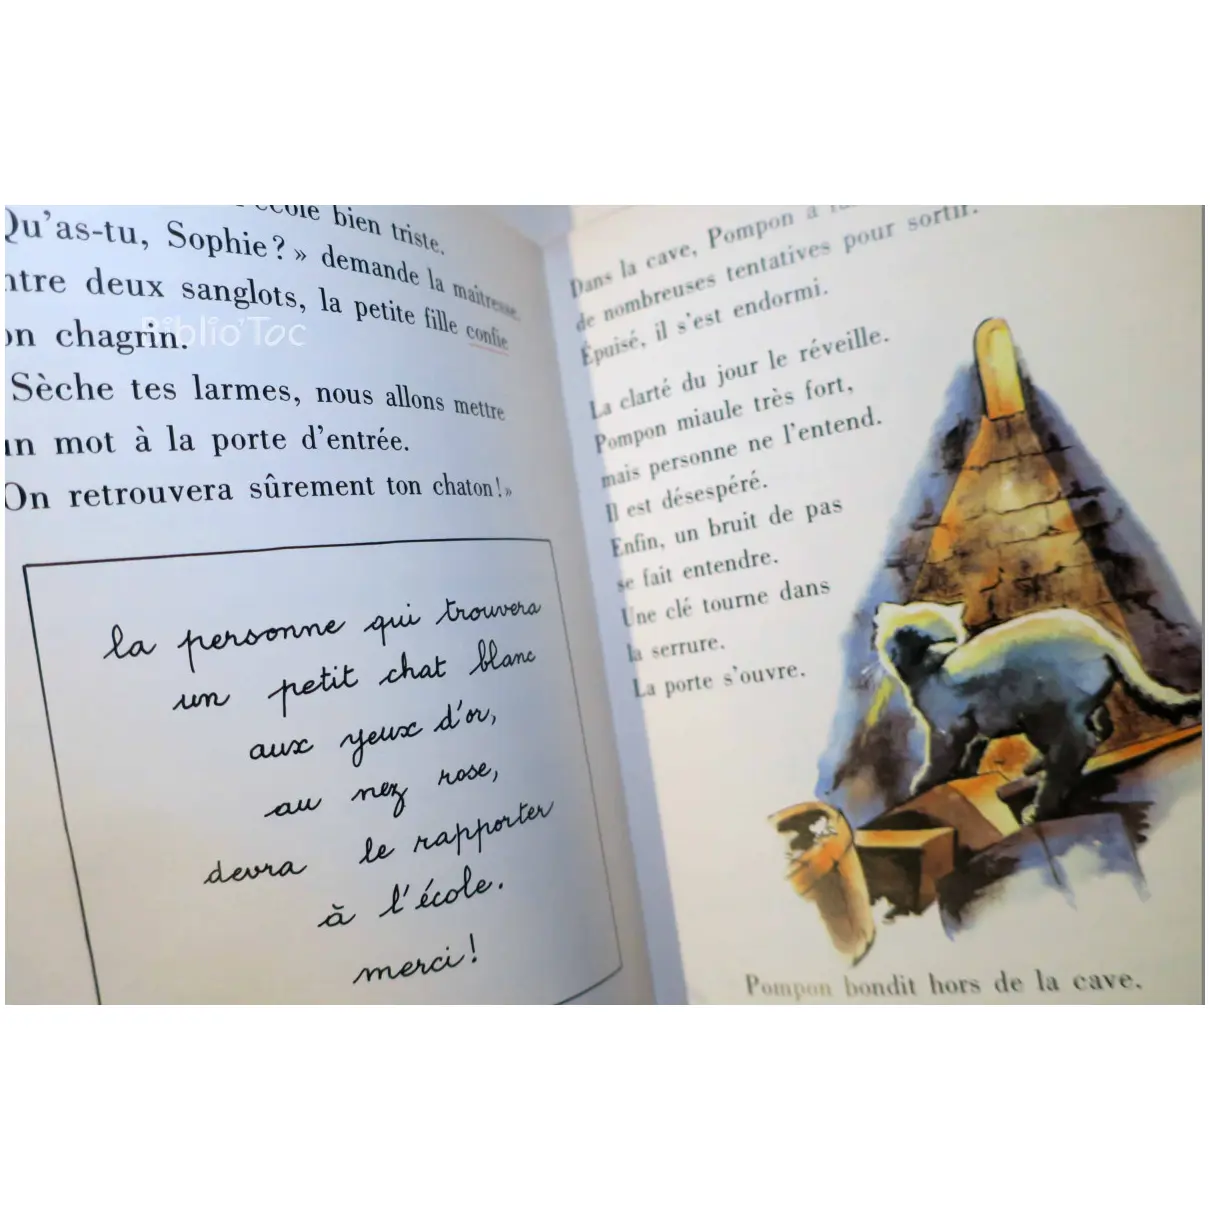 bien triste.
Qu'as-tu, Sophie ? » demande la maîtresse.
deux sanglots, la petite fille confie
chagrin.
Biblio'Toc
Sèche tes larmes, nous allons mettre
mot à la porte d'entrée.
On retrouvera sûrement ton chaton ! »
la personne qui trouvera
un petit chat blanc
aux yeux d'or,
au nez rose,
devra le rapporter
à l'école.
merci !
Dans la cave, Pompon a
de nombreuses tentatives pour sortir.
Épuisé, il s'est endormi.
La clarté du jour le réveille.
Pompon miaule très fort,
mais personne ne l'entend.
Il est désespéré.
Enfin, un bruit de pas
se fait entendre.
Une clé tourne dans
la serrure.
La porte s'ouvre.
Pompon bondit hors de la cave.